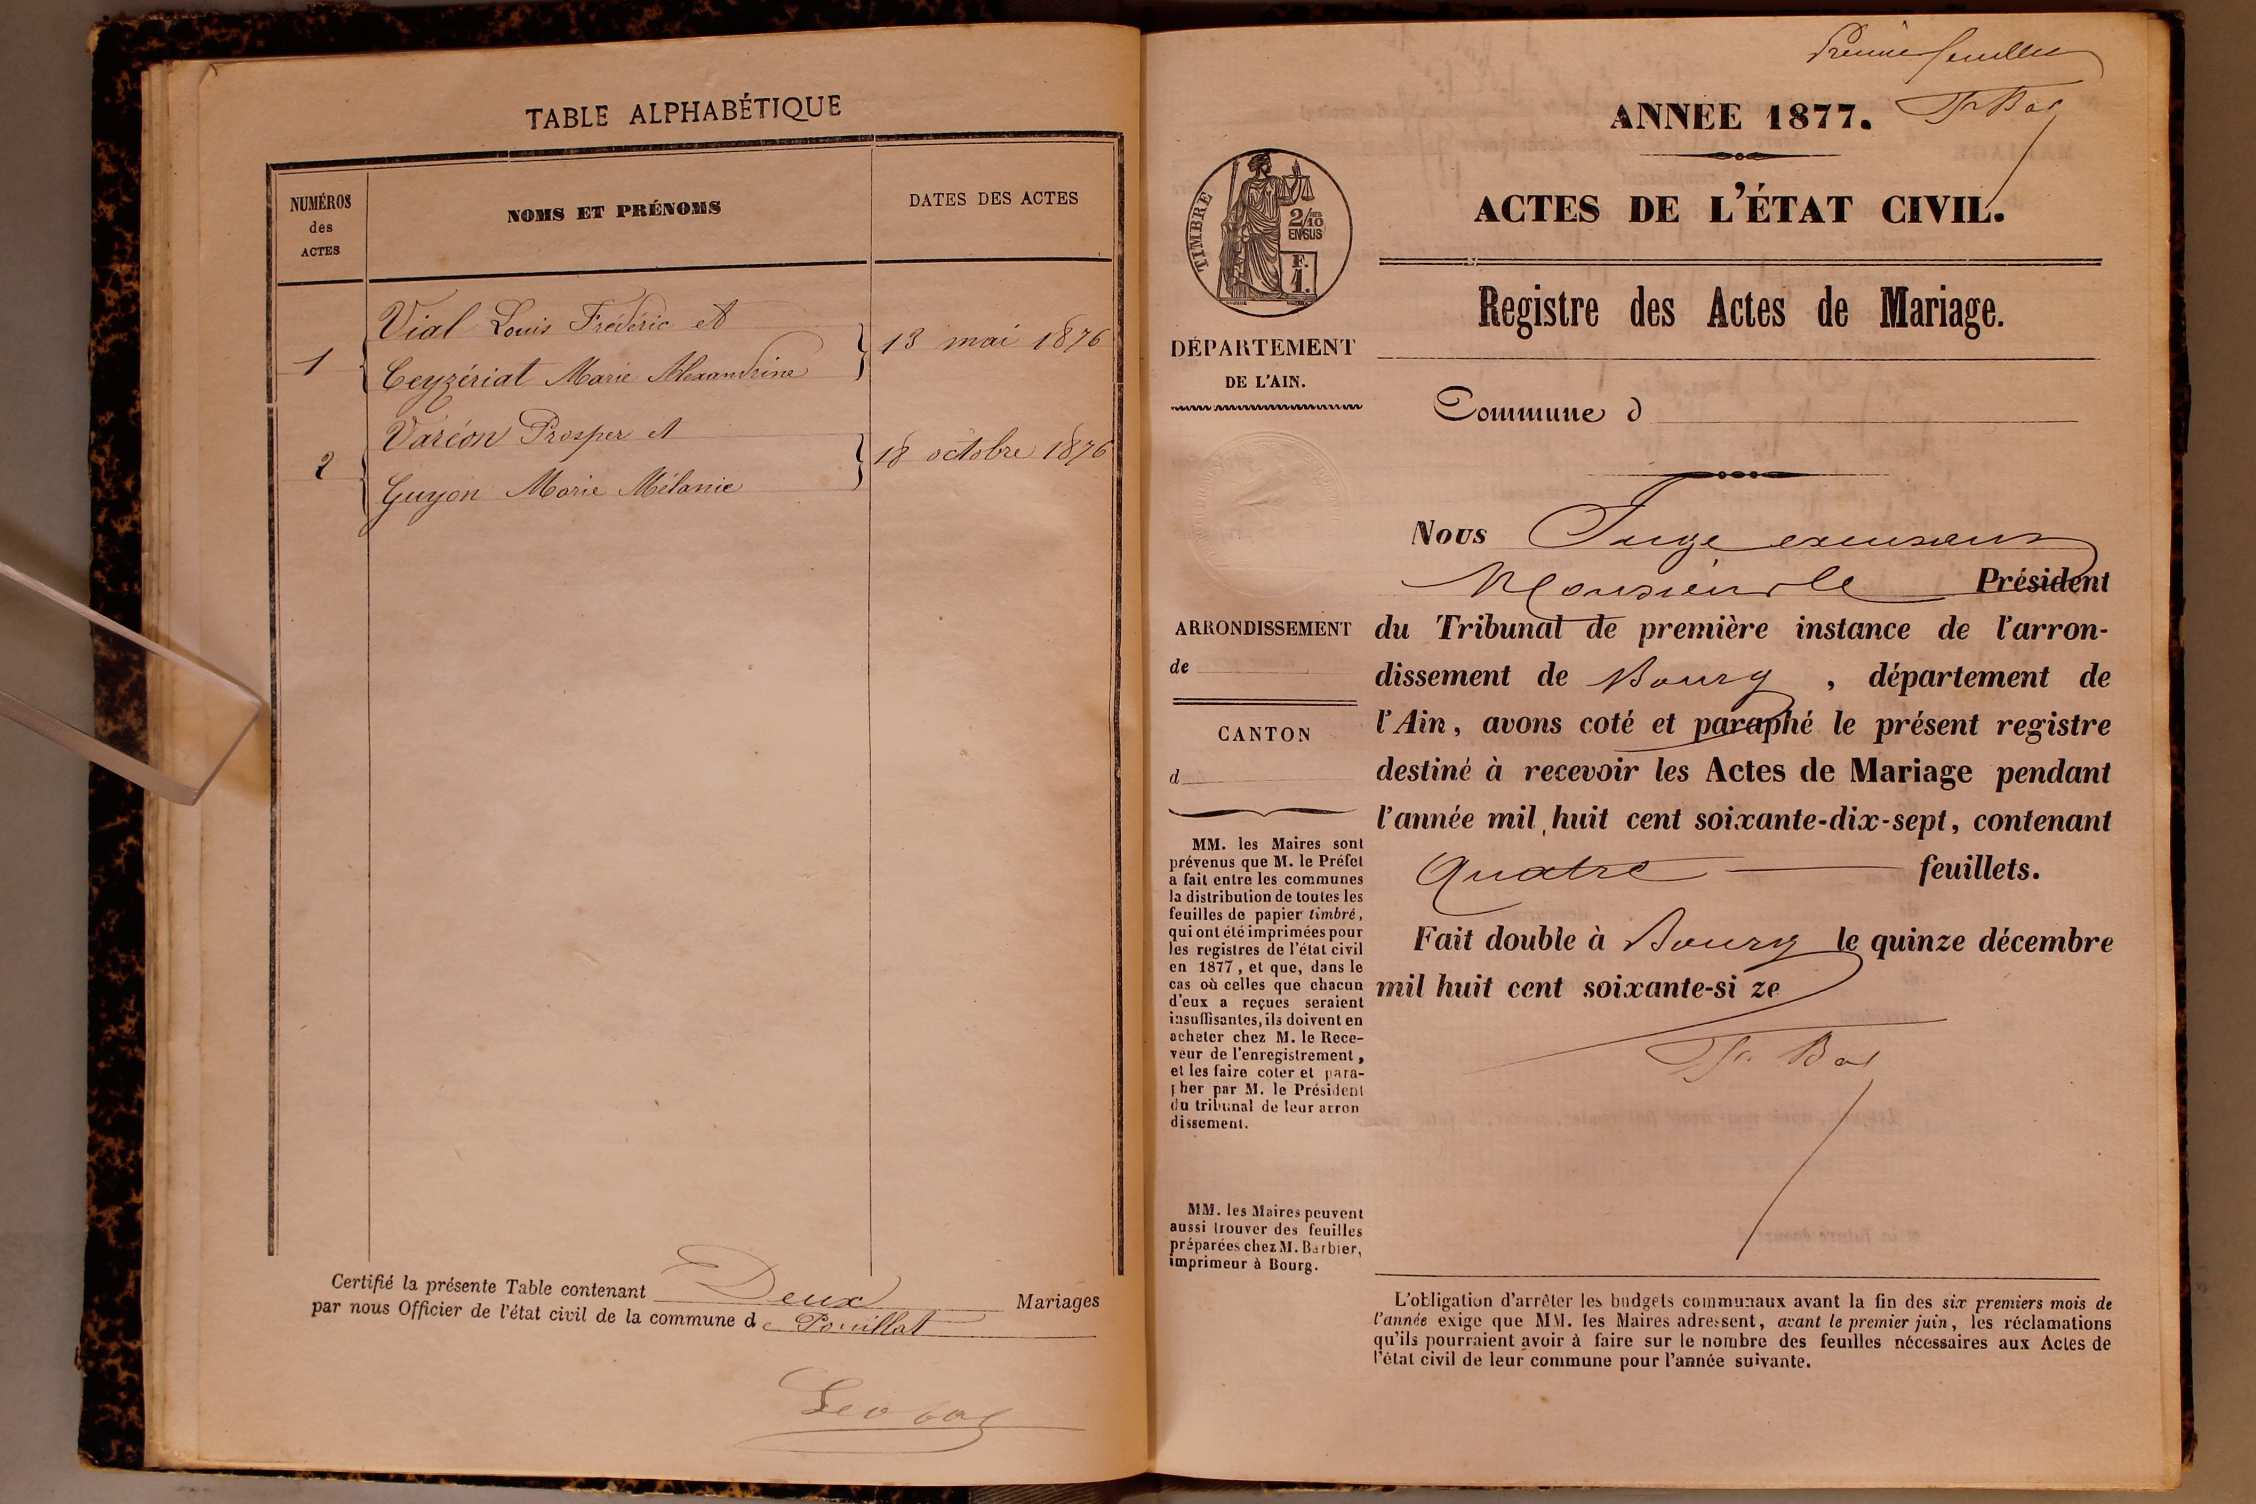 TABLE ALPHABÉTIQUE
NUMÉROS
des
ACTES
NOMS ET PRÉNOMS
DATES DES ACTES
1
Vial Louis Frédéric et
Ceyzériat Marie Alexandrine
13 mai 1876
2
Varéon Prosper et
Guyon Marie Mélanie
18 octobre 1876
Certifié la présente Table contenant Deux Mariages
par nous Officier de l'état civil de la commune de Pouillat
Premier feuillet
ANNÉE 1877.
ACTES DE L'ÉTAT CIVIL.
TIMBRE
2/10
EN SUS
F.
1.
Registre des Actes de Mariage.
DÉPARTEMENT
DE L'AIN.
Commune d
Nous Juge
Monsieur le Président
du Tribunal de première instance de l'arron-
dissement de Bourg, département de
l'Ain, avons coté et paraphé le présent registre
destiné à recevoir les Actes de Mariage pendant
l'année mil huit cent soixante-dix-sept, contenant
Quatre feuillets.
Fait double à Bourg le quinze décembre
mil huit cent soixante-si ze
ARRONDISSEMENT
de
CANTON
d
MM. les Maires sont
prévenus que M. le Préfet
a fait entre les communes
la distribution de toutes les
feuilles de papier timbré,
qui ont été imprimées pour
les registres de l'état civil
en 1877, et que, dans le
cas où celles que chacun
d'eux a reçues seraient
insuffisantes, ils doivent en
acheter chez M. le Rece-
veur de l'enregistrement,
et les faire coter et para-
pher par M. le Président
du tribunal de leur arron
dissement.
MM. les Maires peuvent
aussi trouver des feuilles
préparées chez M. Barbier,
imprimeur à Bourg.
L'obligation d'arrêter les budgets communaux avant la fin des six premiers mois de
l'année exige que MM. les Maires adressent, avant le premier juin, les réclamations
qu'ils pourraient avoir à faire sur le nombre des feuilles nécessaires aux Actes de
l'état civil de leur commune pour l'année suivante.